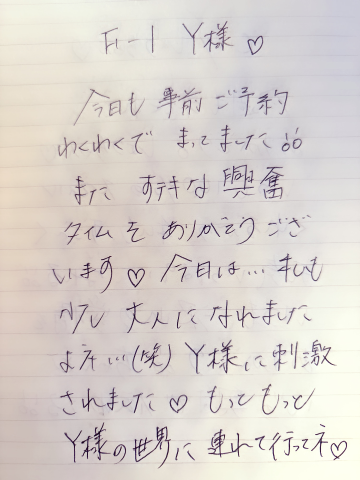 F-1 Y様♡
今日も 事前 ご予約
わくわくで まってました
また ステキな 興奮
タイムを ありがとうござ
います♡ 今日は…私も
少し 大人に なれました
よネ…(笑) Y様に刺激
されました♡ もっと もっと
Y様の世界に 連れて行ってネ♡